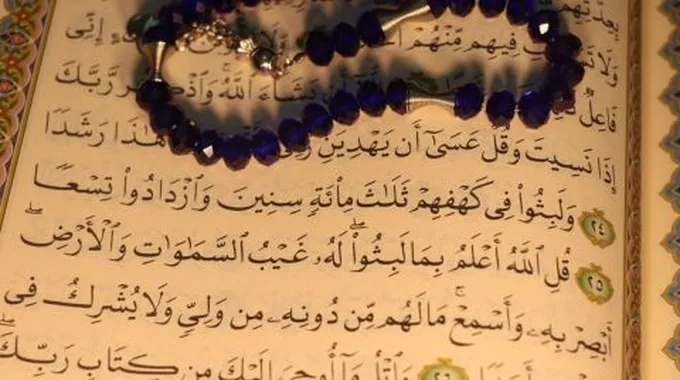 وَلَا تَسْتَفْتِ فِيهِم مِّنْهُمْ وَلَا إِنِّى
فَاعِلٌ يَشَآءَ ٱللَّهُ ۚ وَٱذْكُر رَّبَّكَ
إِذَا نَسِيتَ وَقُلْ عَسَىٰٓ أَن يَهْدِيَنِ رَبِّى هَـٰذَا رَشَدًا
٢٤ وَلَبِثُوا۟ فِى كَهْفِهِمْ ثَلَـٰثَ مِا۟ئَةٍ سِنِينَ وَٱزْدَادُوا۟ تِسْعًا
٢٥ قُلِ ٱللَّهُ أَعْلَمُ بِمَا لَبِثُوا۟ ۖ لَهُۥ غَيْبُ ٱلسَّمَـٰوَٰتِ وَٱلْأَرْضِ ۖ
أَبْصِرْ بِهِۦ وَأَسْمِعْ ۚ مَا لَهُم مِّن دُونِهِۦ مِن وَلِىٍّ وَلَا يُشْرِكُ فِى
٢٦ وَٱتْلُ مَآ أُوحِىَ إِلَيْكَ مِن كِتَابِ رَبِّكَ ۖ